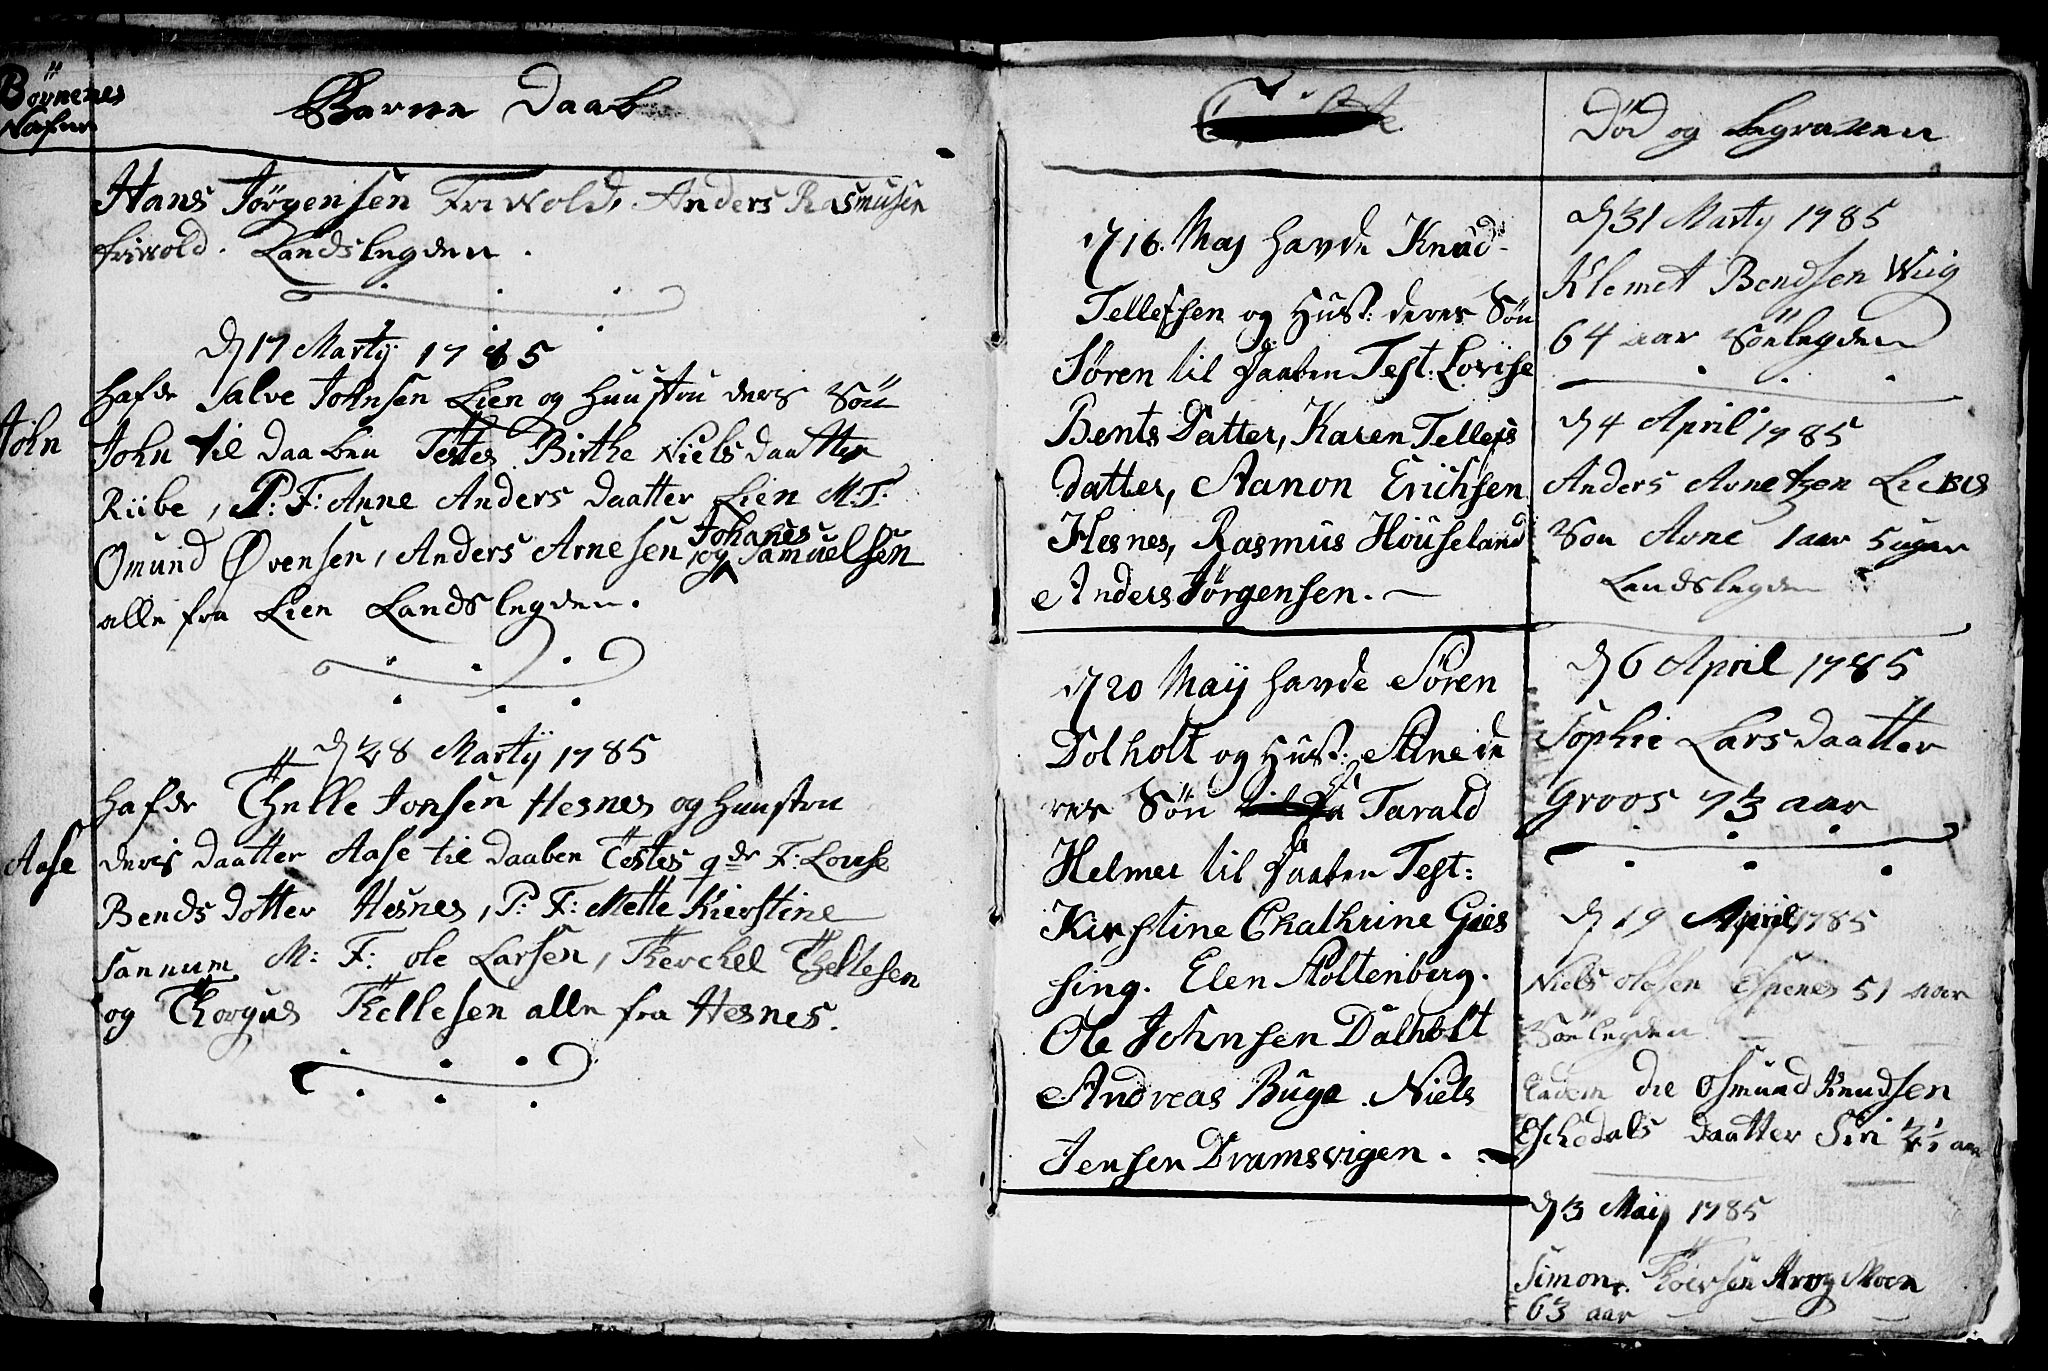 Börnenes
Nafne
Barne Daab
Hans Jörgensen Friwold, Anders Rasmusen
friwold. Landslegden.
d 17 Martÿ 1785
hafde Salve Johnsen Lien og huustru deris Sön
John
John til daaben Testes Birthe Nielsdaatter
Riibe, P: F: Anne Anders daatter Lien M. F:
Omund Øvensen, Anders Arnesen, og Johanes Samuelsen
alle fra Lien Landslegden.
d 28 Martÿ 1785
hafde Thelle Jonsen Hesnes og huustru
Aase
deris daatter Aase til daaben Testes qde F: Louise
Bends dotter Hesnes, P: F: Mette Kierstine
Sannum M: F: ole Larsen, Therchel Thellesen
og Thorgus Thellesen alle fra Hesnes.
d 16. Maj havde Knud
Tellefsen og Hust: deres Sön
Søren til Daaben Test: Lovise
Bents Datter, Karen Tellefs
datter, Aanon Erichsen
Hesnes, Rasmus Houseland
Anders Jørgensen.
d 20 Maij havde Søren
Dolholt og Hust: Ane de
res Sön Tarald
Helmer til Daaben Test:
Kirstine Chathrine Gies
sing. Elen Stoltenberg.
Ole Johnsen Dalholt
Andreas Buge. Niels
Jensen Dramsvigen.
Död og begravne
d 31 Marty 1785
Klemet Bendsen Wiig
64 aar Sönlegden
d 4 April 1785
Anders Arnetzen Liens
Sön Arne 1 aar 5 uger
Landslegden
d 6 April 1785
Sophie Larsdaatter
Groos 73 aar
d 19 April 1785
Niels olesen Espenes 51 aar
Sönlegden
Eadem die Osmund Knudsen
Eschedals daatter Siri 2 1/2 aar
d 3 Maij 1785
Simon Thorsen Moen
63 aar